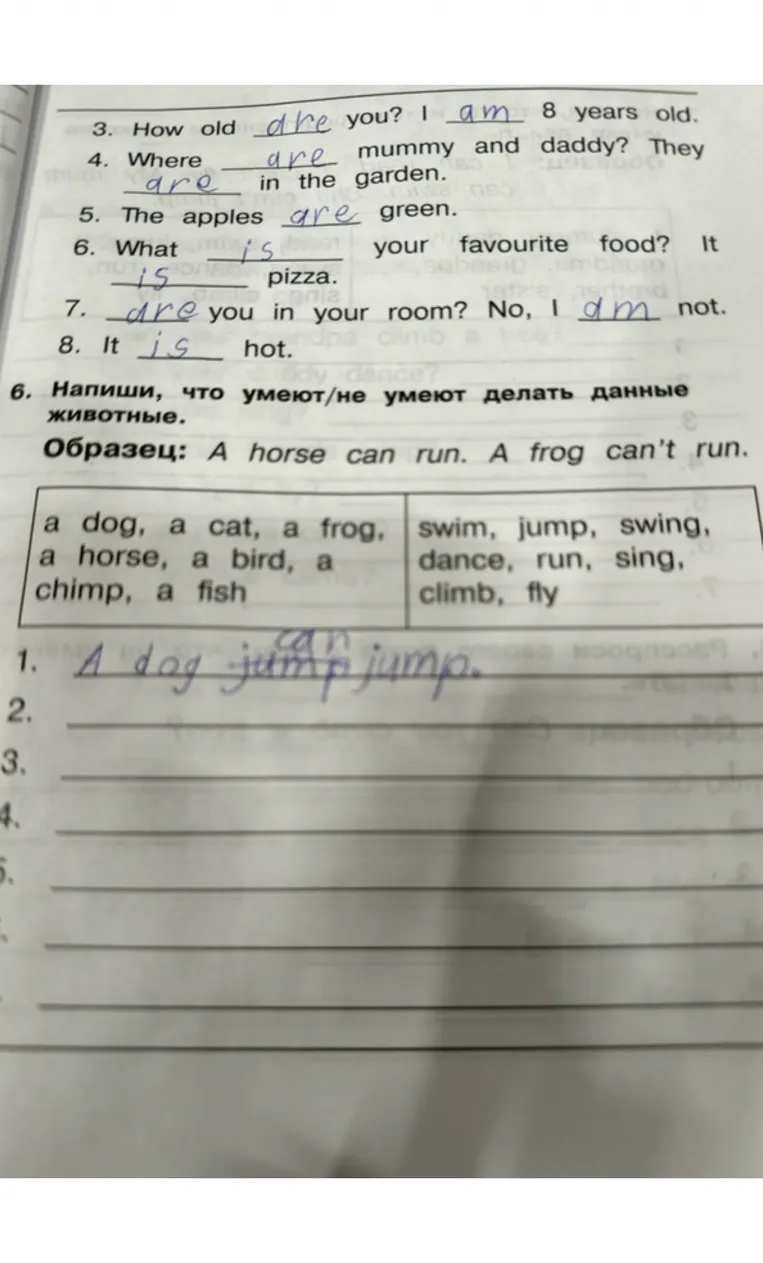 3. How old are you? I am 8 years old.
4. Where are mummy and daddy? They
are in the garden.
5. The apples are green.
6. What is your favourite food? It
is pizza.
7. are you in your room? No, I am not.
8. It is hot.
6. Напиши, что умеют/не умеют делать данные
животные.
Образец: A horse can run. A frog can't run.
a dog, a cat, a frog,
a horse, a bird, a
chimp, a fish
swim, jump, swing,
dance, run, sing,
climb, fly
can
1. A dog jump jump.
2.
3.
4.
5.